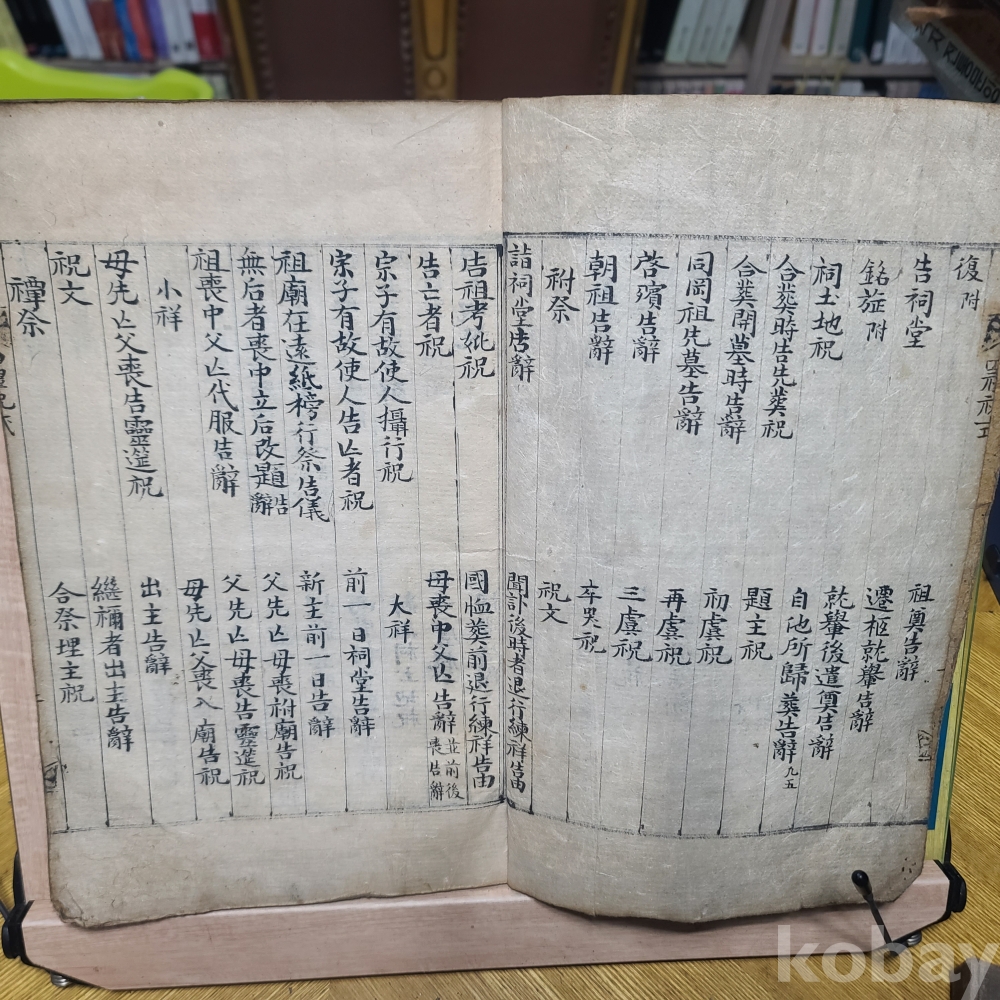 復附
告祠堂
銘旌附
祠土地祝
合葬時告先葬祝
合葬開墓時告辭
同岡祖先墓告辭
啓殯告辭
朝祖告辭
祔祭
詣祠堂告辭
祖奠告辭
遷柩就轝告辭
就轝後遣奠告辭
自他所歸葬告辭九五
題主祝
初虞祝
再虞祝
三虞祝
卒哭祝
祝文
聞訃後時者退行練祥告由
告祖考妣祝
告亡者祝
宗子有故使人攝行祝
宗子有故使人告亡者祝
祖廟在遠紙榜行祭告儀
無后者喪中立后改題告辭
祖喪中父亡代服告辭
小祥
母先亡父喪告靈筵祝
祝文
禫祭
國恤葬前退行練祥告由
母喪中父亡告辭並前後喪告辭
大祥
前一日祠堂告辭
新主前一日告辭
父先亡母喪祔廟告祝
父先亡母喪告靈筵祝
母先亡父喪入廟告祝
出主告辭
繼禰者出主告辭
合祭埋主祝
kobay